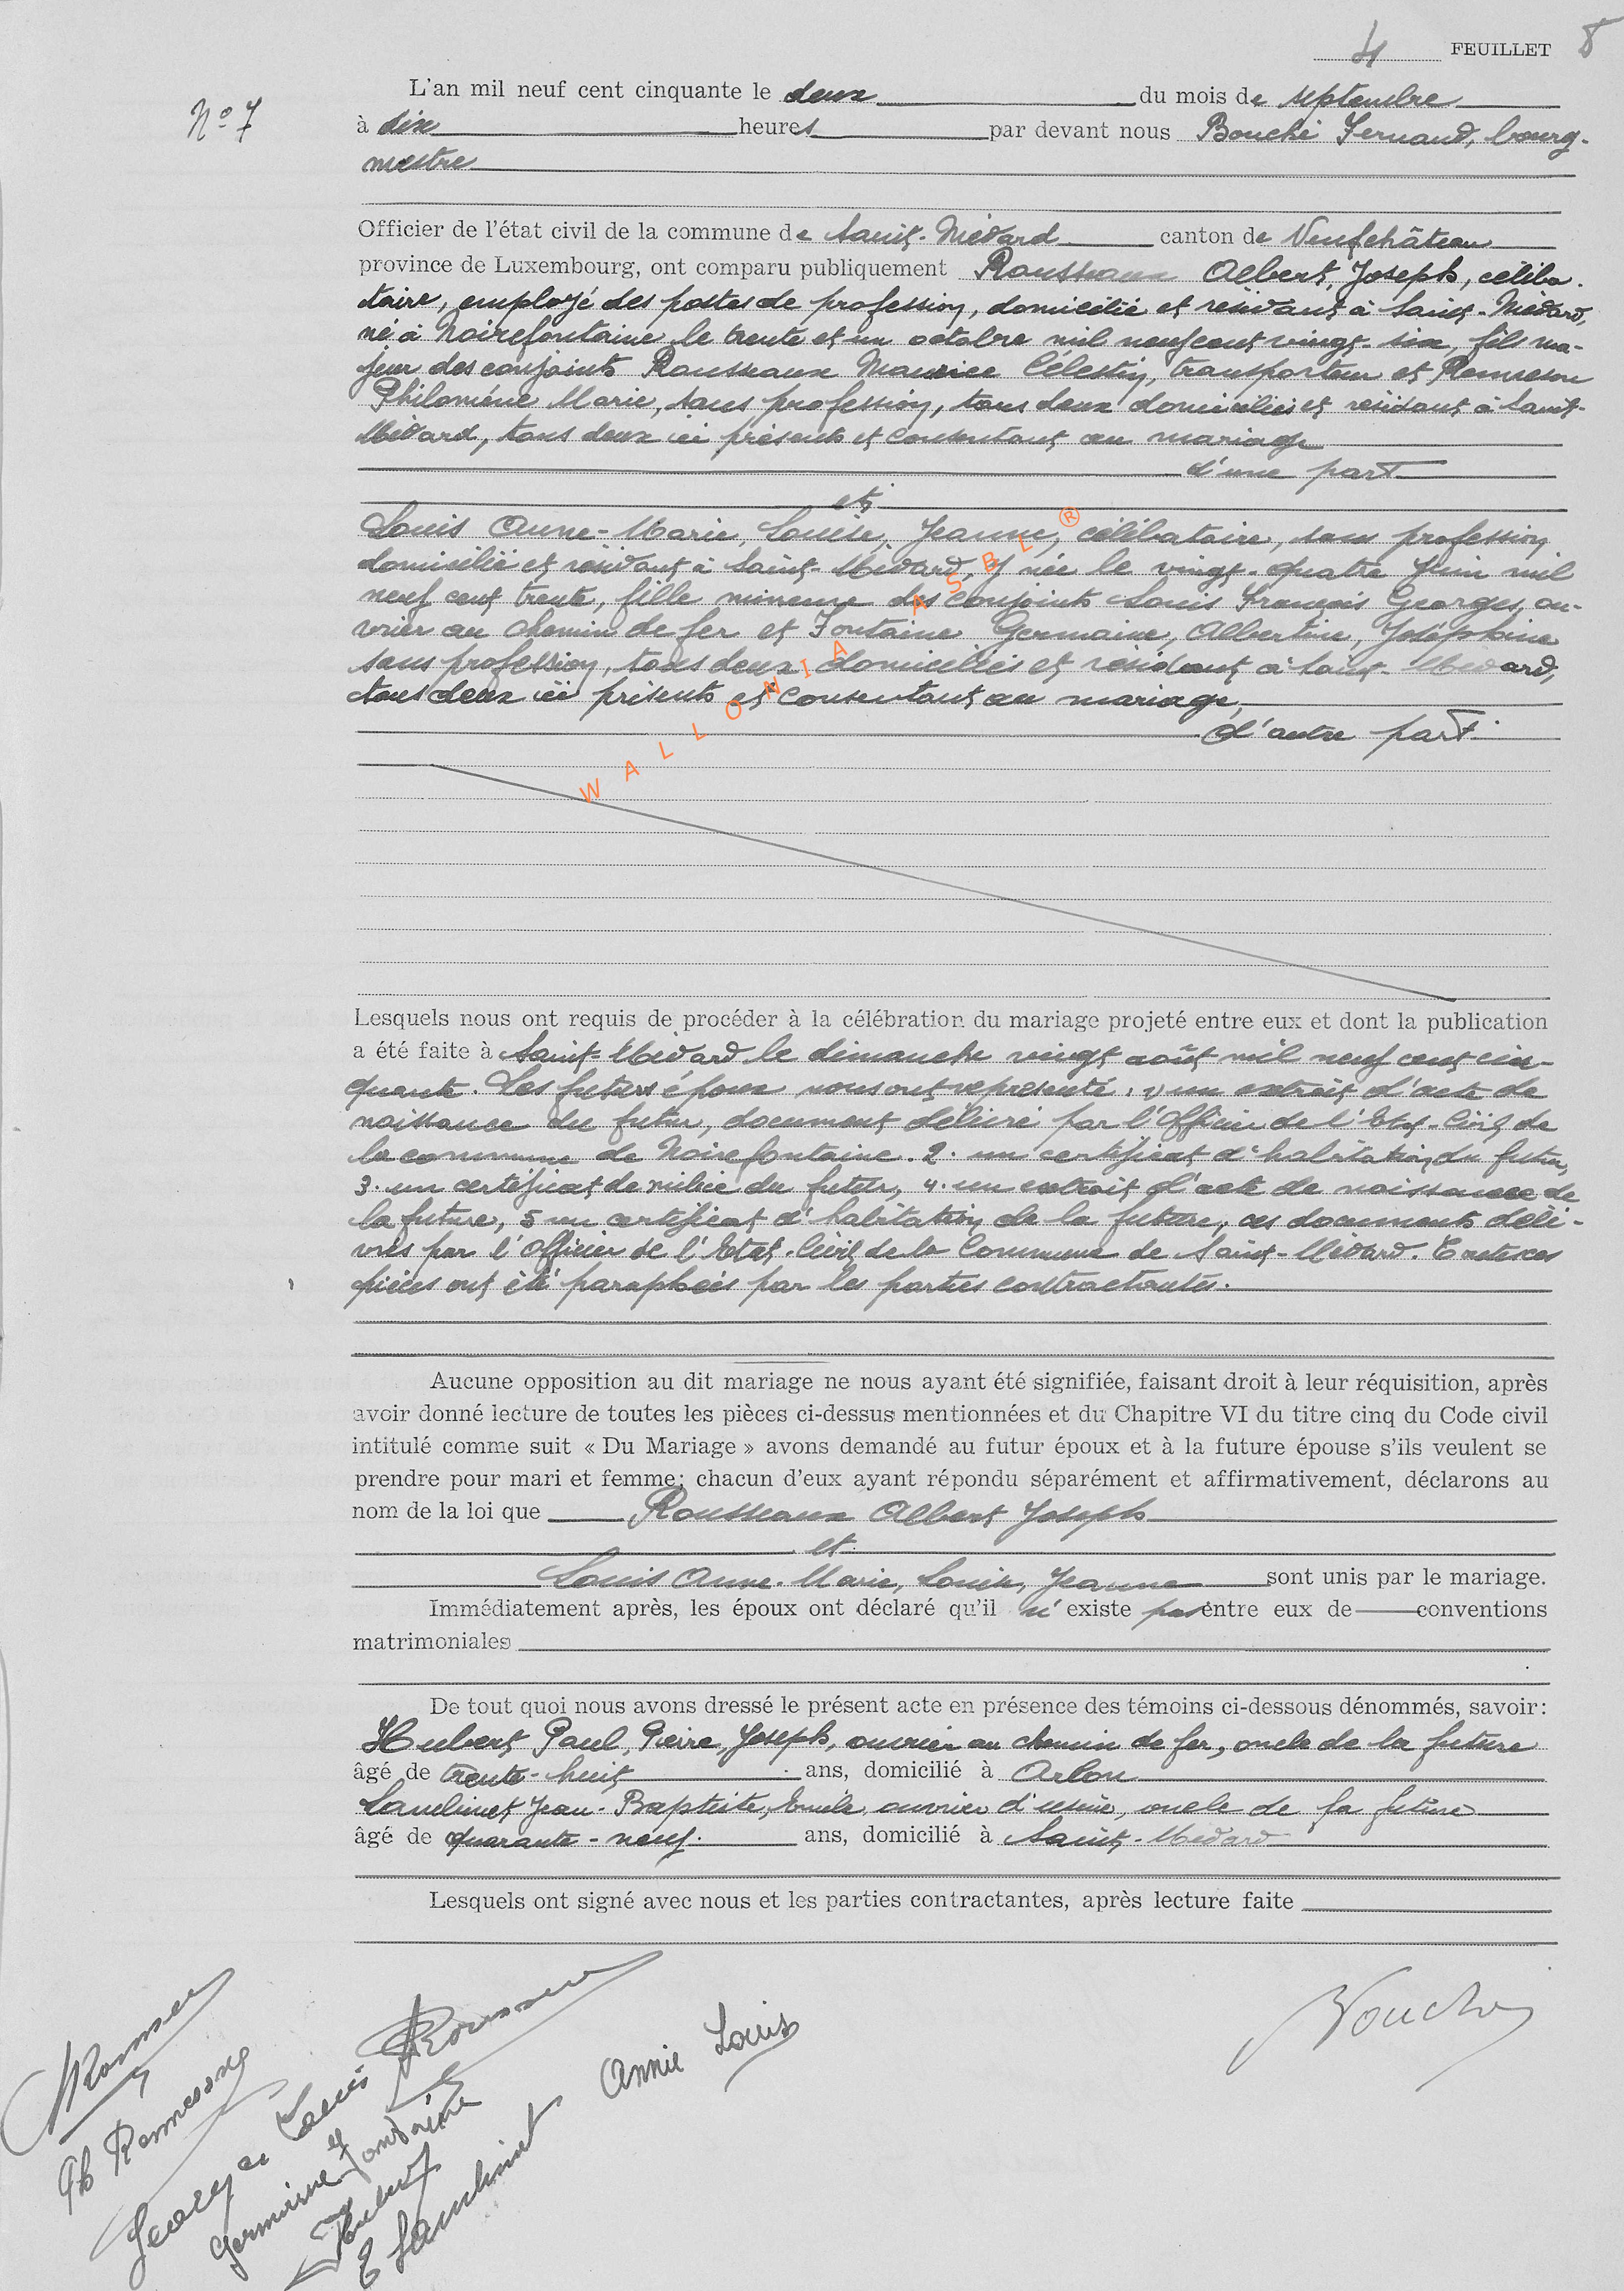 4 FEUILLET 8
L'an mil neuf cent cinquante le deux du mois de septembre
Nº 7
à dix heures par devant nous Bouché Fernand, bourg-
mestre
Officier de l'état civil de la commune de Saint-Médard canton de Neufchâteau
province de Luxembourg, ont comparu publiquement Rousseaux Albert, Joseph, céliba-
taire, employé des postes de profession, domicilié et résidant à Saint-Médard,
né à Noirefontaine le trente et un octobre mil neuf cent vingt-six, fils ma-
jeur des conjoints Rousseaux Maurice Célestin, transporteur et Remeson
Philomène Marie, sans profession, tous deux domiciliés et résidant à Saint-
Médard, tous deux ici présents et consentant au mariage
d'une part
et
Louis Anne-Marie, Louise, Jeanne, célibataire, sans profession
domiciliée et résidant à Saint-Médard, y née le vingt-quatre juin mil
neuf cent trente, fille mineure des conjoints Louis François Georges, ou-
vrier au chemin de fer et Fontaine Germaine, Albertine, Joséphine
sans profession, tous deux domiciliés et résidant à Saint-Médard,
tous deux ici présents et consentant au mariage,
d'autre part.
WALLONIA ASBL ®
Lesquels nous ont requis de procéder à la célébration du mariage projeté entre eux et dont la publication
a été faite à Saint-Médard le dimanche vingt août mil neuf cent cin-
quante. Les futurs époux nous ont représenté: 1) un extrait d'acte de
naissance du futur, document délivré par l'Officier de l'Etat-Civil de
la commune de Noirefontaine. 2. un certificat d'habitation du futur,
3. un certificat de milice du futur, 4. un extrait d'acte de naissance de
la future, 5 un certificat d'habitation de la future, ces documents déli-
vrés par l'Officier de l'Etat-Civil de la Commune de Saint-Médard. Toutes ces
pièces ont été paraphées par les parties contractantes.
Aucune opposition au dit mariage ne nous ayant été signifiée, faisant droit à leur réquisition, après
avoir donné lecture de toutes les pièces ci-dessus mentionnées et du Chapitre VI du titre cinq du Code civil
intitulé comme suit « Du Mariage » avons demandé au futur époux et à la future épouse s'ils veulent se
prendre pour mari et femme; chacun d'eux ayant répondu séparément et affirmativement, déclarons au
nom de la loi que Rousseaux Albert Joseph
et
Louis Anne-Marie, Louise, Jeanne sont unis par le mariage.
Immédiatement après, les époux ont déclaré qu'il n'existe pas entre eux de conventions
matrimoniales
De tout quoi nous avons dressé le présent acte en présence des témoins ci-dessous dénommés, savoir:
Hubert Paul, Pierre, Joseph, ouvrier au chemin de fer, oncle de la future
âgé de trente-huit ans, domicilié à Arlon
Laulinet Jean-Baptiste, Emile, ouvrier d'usine, oncle de la future
âgé de quarante-neuf. ans, domicilié à Saint-Médard
Lesquels ont signé avec nous et les parties contractantes, après lecture faite
Ph Remeson
Georges Louis
Germaine Fontaine
Hubert
Annie Louis
Bouché